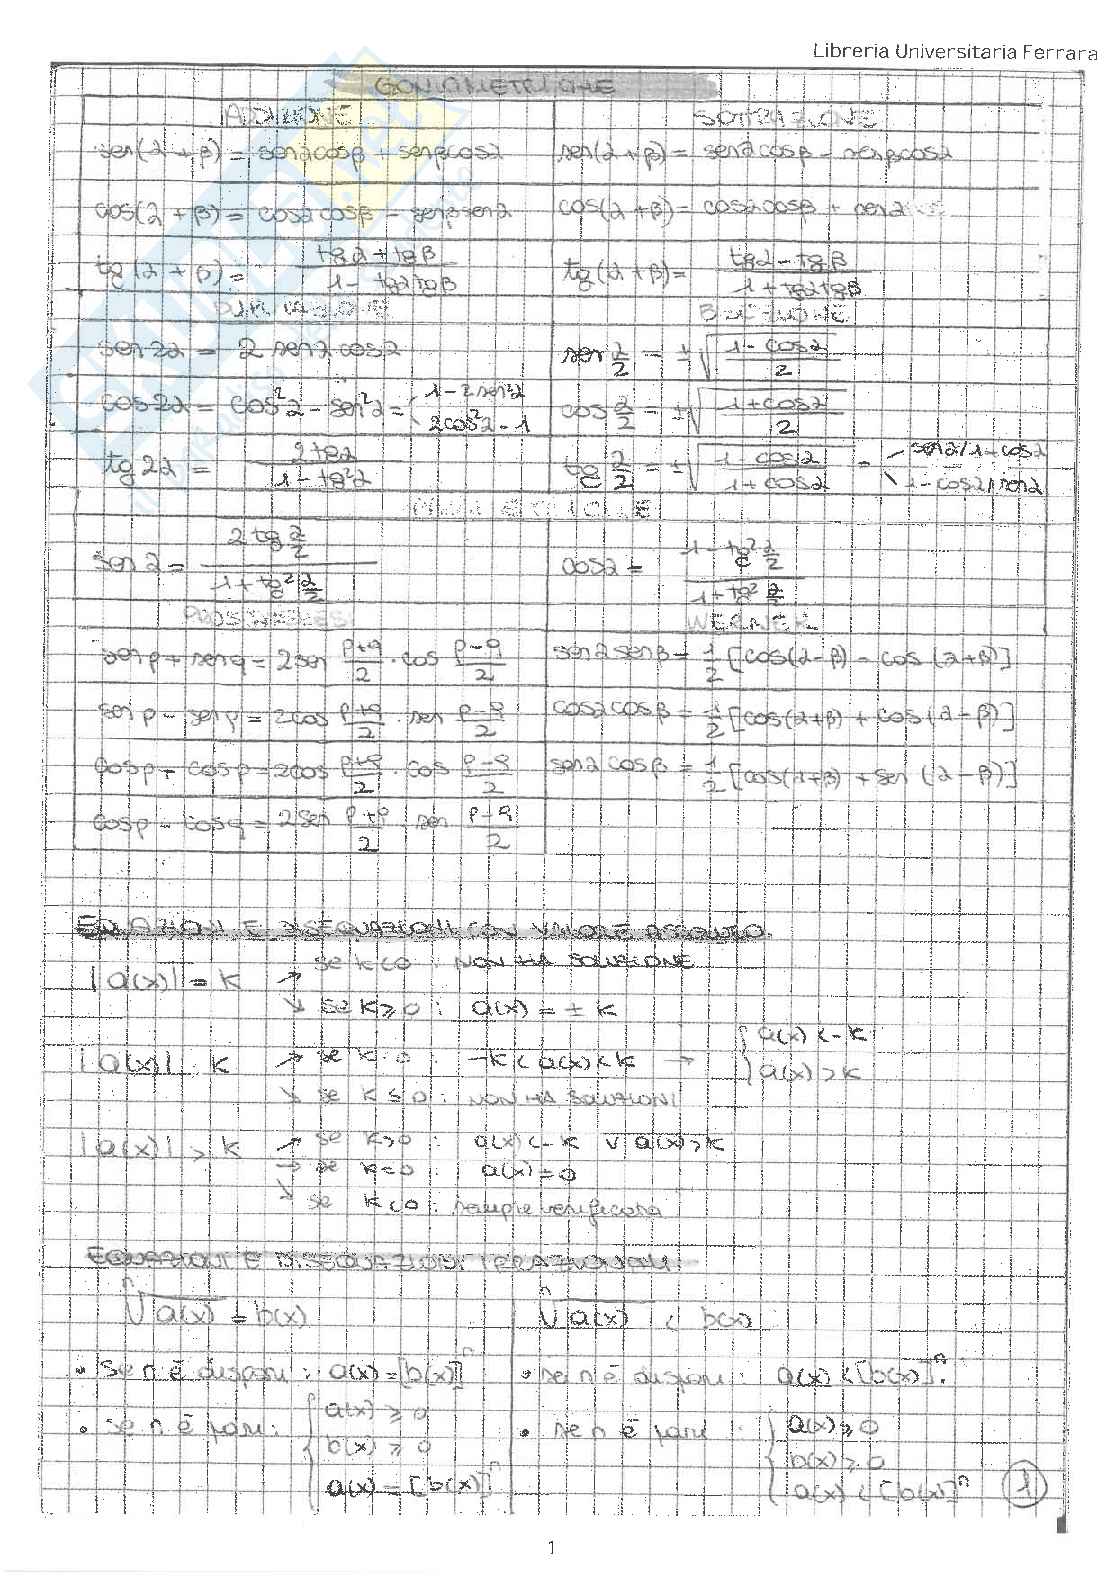 Libreria Universitaria Ferrara
GONIOMETRICHE
ADDIZIONE SOTTRAZIONE
sen(α + β) = senαcosβ + senβcosα sen(α + β) = senαcosβ - senβcosα
cos(α + β) = cosαcosβ - senβsenα cos(α + β) = cosαcosβ + senα
tg(α + β) = tgα + tgβ / 1 - tgαtgβ tg(α + β) = tgα - tgβ / 1 + tgαtgβ
DUPLICAZIONE BISEZIONE
sen2α = 2 senα cosα sen α/2 = ±√(1 - cosα / 2)
cos2α = cos²α - sen²α = { 1 - 2sen²α 2cos²α - 1 cos α/2 = ±√(1 + cosα / 2)
tg2α = 2tgα / 1 - tg²α tg α/2 = ±√(1 - cosα / 1 + cosα) = senα/1+cosα 1-cosα/senα
PARAMETRICHE
senα = 2tg α/2 / 1 + tg² α/2 cosα = 1 - tg² α/2 / 1 + tg² α/2
PROSTAFERESI WERNER
senp + senq = 2sen p+q/2 · cos p-q/2 senαsenβ = 1/2 [cos(α-β) - cos(α+β)]
senp - senp = 2cos p+q/2 · sen p-q/2 cosαcosβ = 1/2 [cos(α+β) + cos(α-β)]
cosp + cosp = 2cos p+q/2 · cos p-q/2 senαcosβ = 1/2 [cos(α+β) + sen(α-β)]
cosp - cosq = 2sen p+q/2 sen p-q/2
EQUAZIONI E DISEQUAZIONI CON VALORE ASSOLUTO.
|a(x)| = k → se k<0 : NON HA SOLUZIONE
↘ se k≥0 : a(x) = ± k
|a(x)| k → se k 0 : -k < a(x) < k → { a(x) < -k
a(x) > k
↘ se k ≤ 0 : NON HA SOLUZIONI
|a(x)| > k → se k>0 : a(x) < -k ∨ a(x) > k
→ se k=0 : a(x) = 0
↘ se k<0 : sempre verificata
EQUAZIONI E DISEQUAZIONI IRRAZIONALI
ⁿ√a(x) = b(x) ⁿ√a(x) < b(x)
• Se n è dispari : a(x) = [b(x)]ⁿ • se n è dispari : a(x) < [b(x)]ⁿ.
• se n è pari : { a(x) ≥ 0 • se n è pari : { a(x) ≥ 0
b(x) ≥ 0 b(x) ≥ 0
a(x) = [b(x)]ⁿ a(x) < [b(x)]ⁿ
1
1